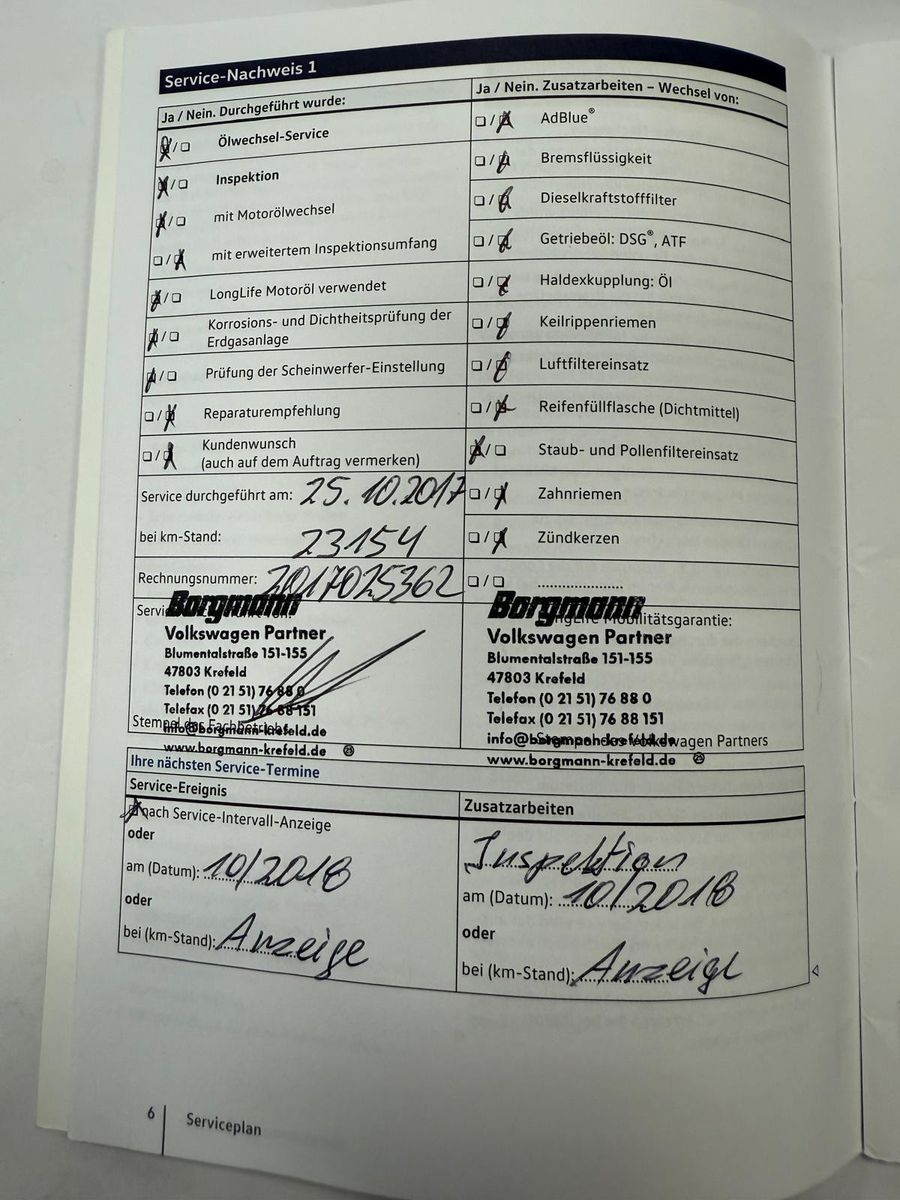 Service-Nachweis 1
Ja / Nein. Durchgeführt wurde:
❏/❏ Ölwechsel-Service
❏/❏ Inspektion
❏/❏ mit Motorölwechsel
❏/❏ mit erweitertem Inspektionsumfang
❏/❏ LongLife Motoröl verwendet
❏/❏ Korrosions- und Dichtheitsprüfung der
Erdgasanlage
❏/❏ Prüfung der Scheinwerfer-Einstellung
❏/❏ Reparaturempfehlung
❏/❏ Kundenwunsch
(auch auf dem Auftrag vermerken)
Service durchgeführt am: 25.10.2017
bei km-Stand: 23154
Rechnungsnummer: 2017025362
Borgmann
Volkswagen Partner
Blumentalstraße 151-155
47803 Krefeld
Telefon (0 21 51) 76 88 0
Telefax (0 21 51) 76 88 151
Stempel des Fachbetriebs
info@borgmann-krefeld.de
www.borgmann-krefeld.de 23
Ja / Nein. Zusatzarbeiten – Wechsel von:
❏/❏ AdBlue®
❏/❏ Bremsflüssigkeit
❏/❏ Dieselkraftstofffilter
❏/❏ Getriebeöl: DSG®, ATF
❏/❏ Haldexkupplung: Öl
❏/❏ Keilrippenriemen
❏/❏ Luftfiltereinsatz
❏/❏ Reifenfüllflasche (Dichtmittel)
❏/❏ Staub- und Pollenfiltereinsatz
❏/❏ Zahnriemen
❏/❏ Zündkerzen
❏/❏ ....................
LongLife Mobilitätsgarantie:
Borgmann
Volkswagen Partner
Blumentalstraße 151-155
47803 Krefeld
Telefon (0 21 51) 76 88 0
Telefax (0 21 51) 76 88 151
info@borgmann-krefeld.de
Stempel des Volkswagen Partners
www.borgmann-krefeld.de 23
Ihre nächsten Service-Termine
Service-Ereignis
❏ nach Service-Intervall-Anzeige
oder
am (Datum): 10/2018
oder
bei (km-Stand): Anzeige
Zusatzarbeiten
Inspektion
am (Datum): 10/2018
oder
bei (km-Stand): Anzeige
6 Serviceplan